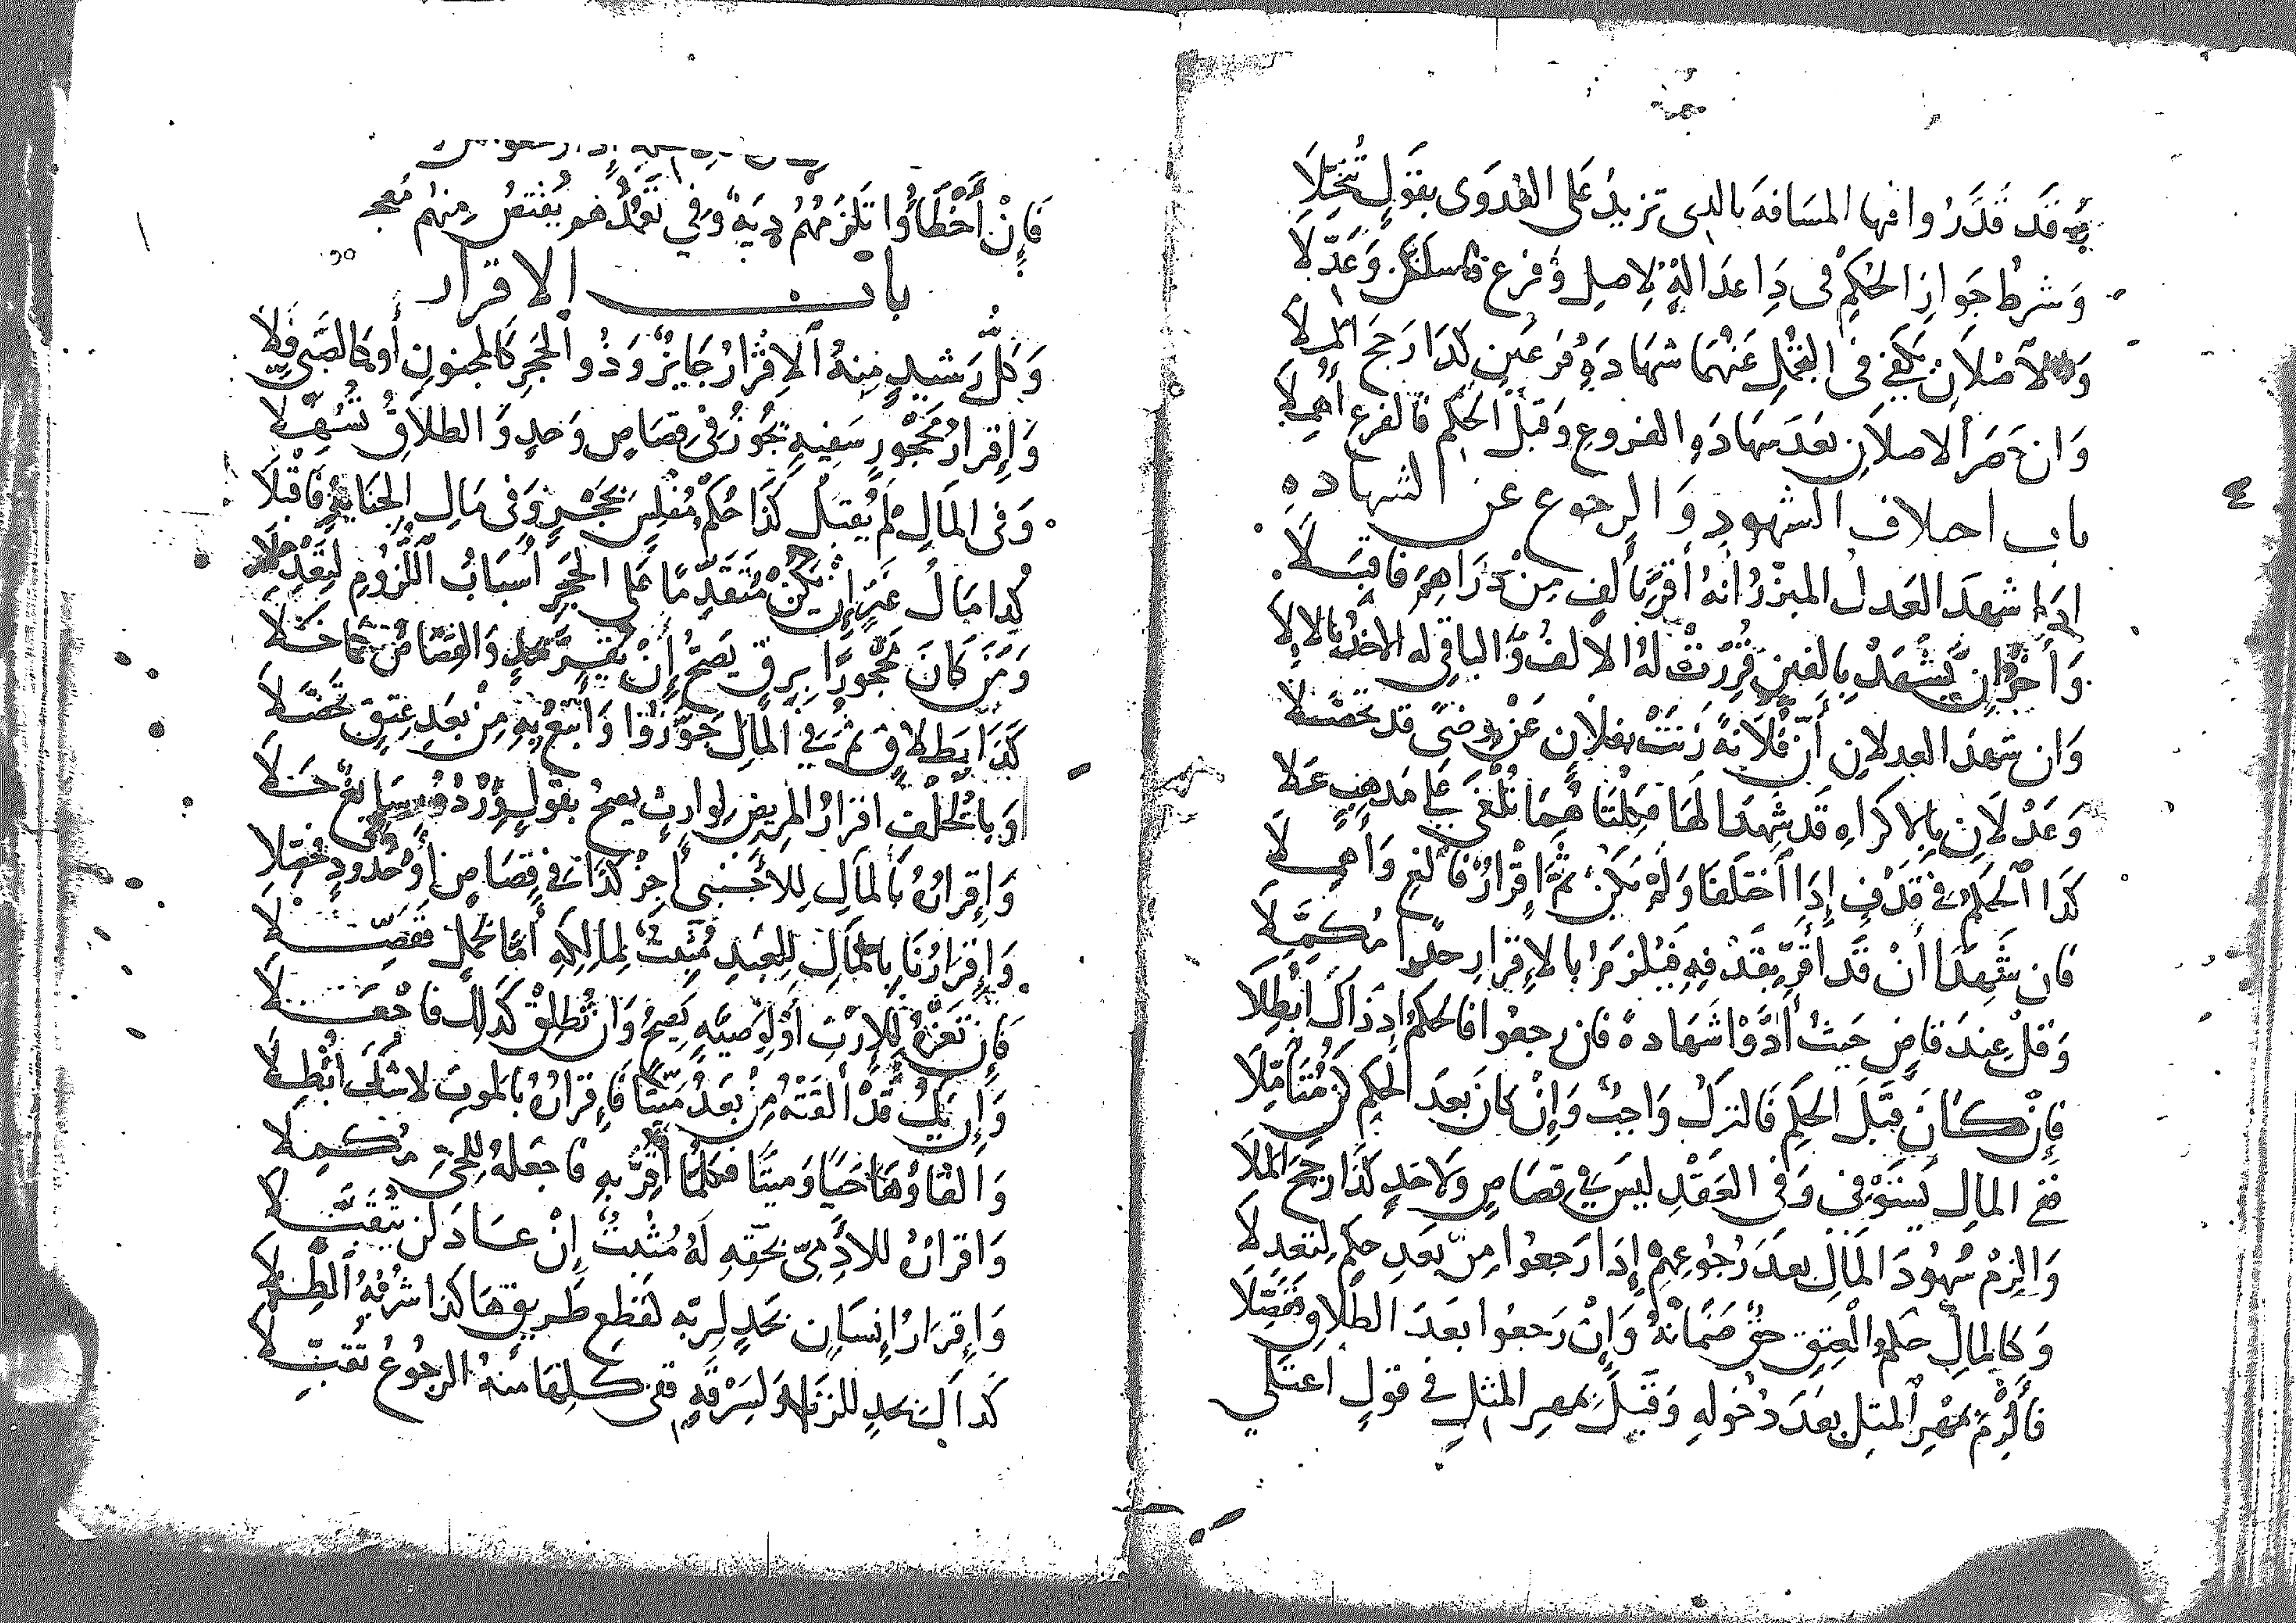 فقد قدروا فيها المسافة بالذي تزيد على العدوى بقول تخيلا
وشرط جواز الحكم في ذا عدالة لاصل وفرع وعدلا
والاصلان يكفي في التحمل عنهما شهادة فرعين كذا رجح الملا
وان حضر الاصلان بعد شهاده الفروع وقبل الحكم فالفرع اهملا
باب اختلاف الشهود والرجوع عن الشهاده
اذا شهد العدل المبرز انه أقر بألف من دراهم فاقبلا
وأخر ان يشهد بالفين قررت له الالف والباقي له الاخذ بالالا
وان شهد العدلان أن فلانة زنت بفلان عن رضى قد تحصلا
وعدلان بالاكراه قد شهدا لها فكلتا هما تلغى على مذهب علا
كذا الحكم في قذف إذا اختلفا ولم يكن ثم إقرار فالغ وأهملا
فان شهدا أن قد اقر بقذفه فيلزم بالإقرار حدا مكملا
وقل عند قاض حيث أدوا شهادة فان رجعوا فالحكم اذ ذاك ابطلا
فإن كان قبل الحكم فالترك واجب وإن كان بعد الحكم كن متأملا
ففي المال يستوفى وفي العقد ليس في قصاص ولا حد كذا رجح الملا
والزم شهود المال بعد رجوعهم إذا رجعوا من بعد حكم لتعدلا
وكالمال حكم العتق حق ضمانه وإن رجعوا بعد الطلاق تحصلا
فألزم بمهر المثل بعد دخوله وقبل بمهر المثل في قول اعتلي
فإن أخطأوا تلزمهم دية وفي تعمد هو يقتص منهم معجـ
باب الاقرار
وكل رشيد منه الاقرار جايز وذو الحجر كالمجنون أو كالصبي فلا
وإقرار محجور سفيه تجوز في قصاص وحد والطلاق تسهلا
وفي المال لم يقبل كذا حكم مفلس بحجر وفي مال الجناية فاقبلا
كذا مال غير إن يكن متقدما على الحجر أسباب اللزوم
ومن كان محجورا برق يصح إن يقر بحد والقصاص كما خلا
كذا بطلاق ثم في المال جوزوا وأتبع به من بعد عتق تحصلا
وبالخلف اقرار المريض لوارث يصح بقول سايغ حلا
وإقراره بالمال للأجنبي أجز كذا في قصاص أو حدود
وإقرارنا بالمال للعبد مثبت لمالكه أما لحمل ففصلا
فإن تعزه للارث أو لوصية يصح وان تطلق كذلك فاجعلا
وإن يك قد ألقته من بعد ميتا فإقراره بالموت لا شك ابطلا
والقاؤها حيا وميتا فكلما أقر به فاجعله للحي مكملا
واقراره للادمي بحقه له مثبت إن عاد لن يتقبلا
وإقرار إنسان بحد لربه لقطع طريق ها كذا شربه الطلا
كذاك بحد للزنا ولسرقة ففي كلها منه الرجوع تقبلا